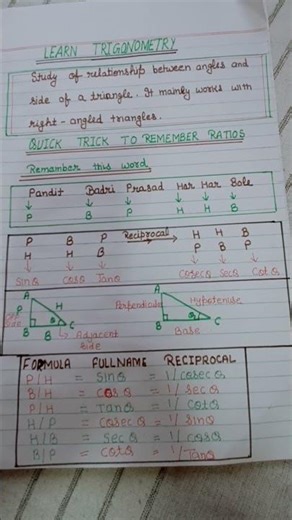 LEARN TRIGONOMETRY
Study of relationship between angles and
side of a triangle. It mainly works with
right-angled triangles.
QUICK TRICK TO REMEMBER RATIOS
Remamber this word
Pandit Badri Prasad Har Har Bole
↓ ↓ ↓ ↓ ↓ ↓
P B P H H B
P B P Reciprocal → H H B
H H B P B P
↓ ↓ ↓ ↓ ↓ ↓
Sinθ Cosθ Tanθ Cosecθ Secθ Cotθ
A A
P H Perpendicular Hypotenuse
side
B θ C B θ C
B → Adjacent Base
side
FORMULA FULLNAME RECIPROCAL
P/H = Sinθ = 1/cosecθ
B/H = cosθ = 1/secθ
P/H = Tanθ = 1/cotθ
H/P = Cosecθ = 1/sinθ
H/B = Secθ = 1/cosθ
B/P = cotθ = 1/Tanθ